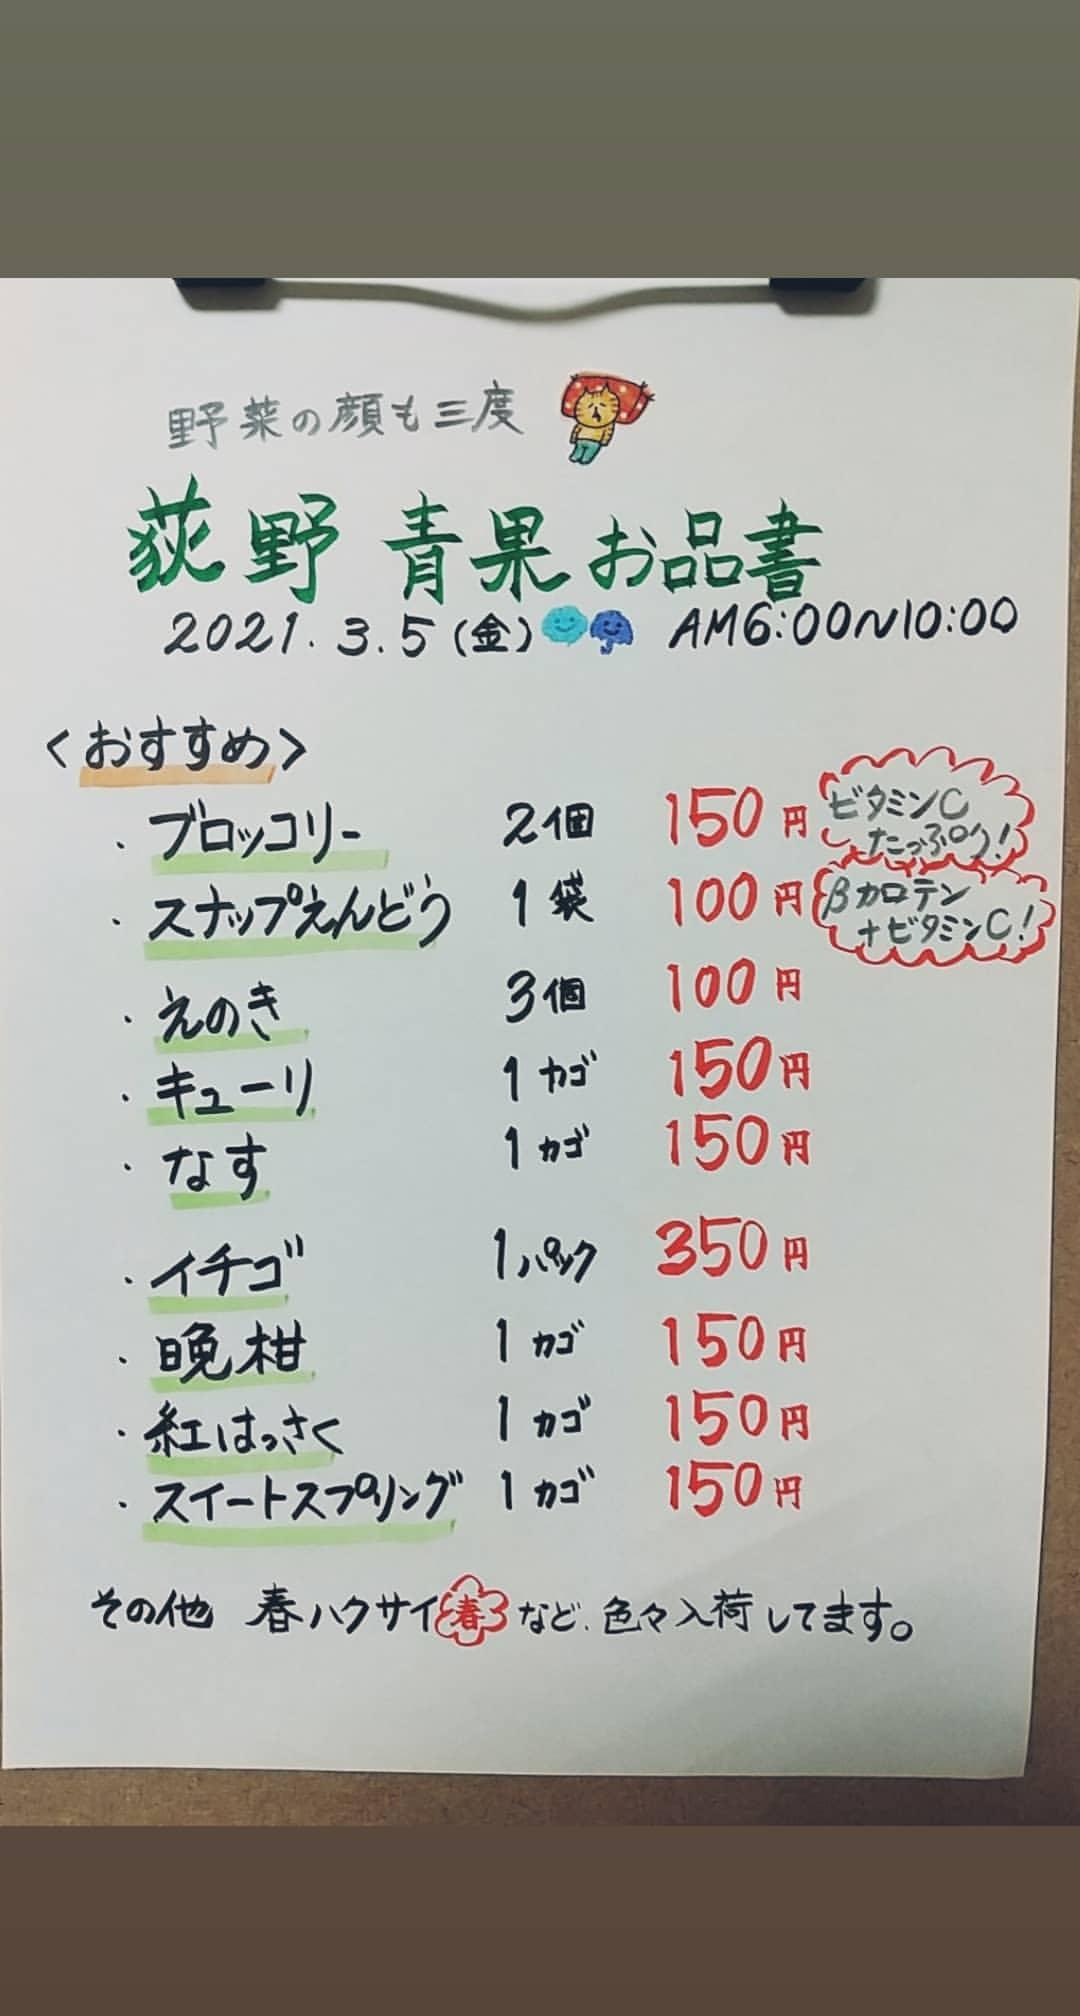 野菜の顔も三度
荻野 青果 お品書
2021.3.5(金) AM6:00~10:00
<おすすめ>
・ブロッコリー 2個 150円 ビタミンC
たっぷり!
・スナップえんどう 1袋 100円 βカロテン
+ビタミンC!
・えのき 3個 100円
・キューリ 1カゴ 150円
・なす 1カゴ 150円
・イチゴ 1パック 350円
・晩柑 1カゴ 150円
・紅はっさく 1カゴ 150円
・スイートスプリング 1カゴ 150円
その他 春ハクサイ 春 など、色々入荷してます。